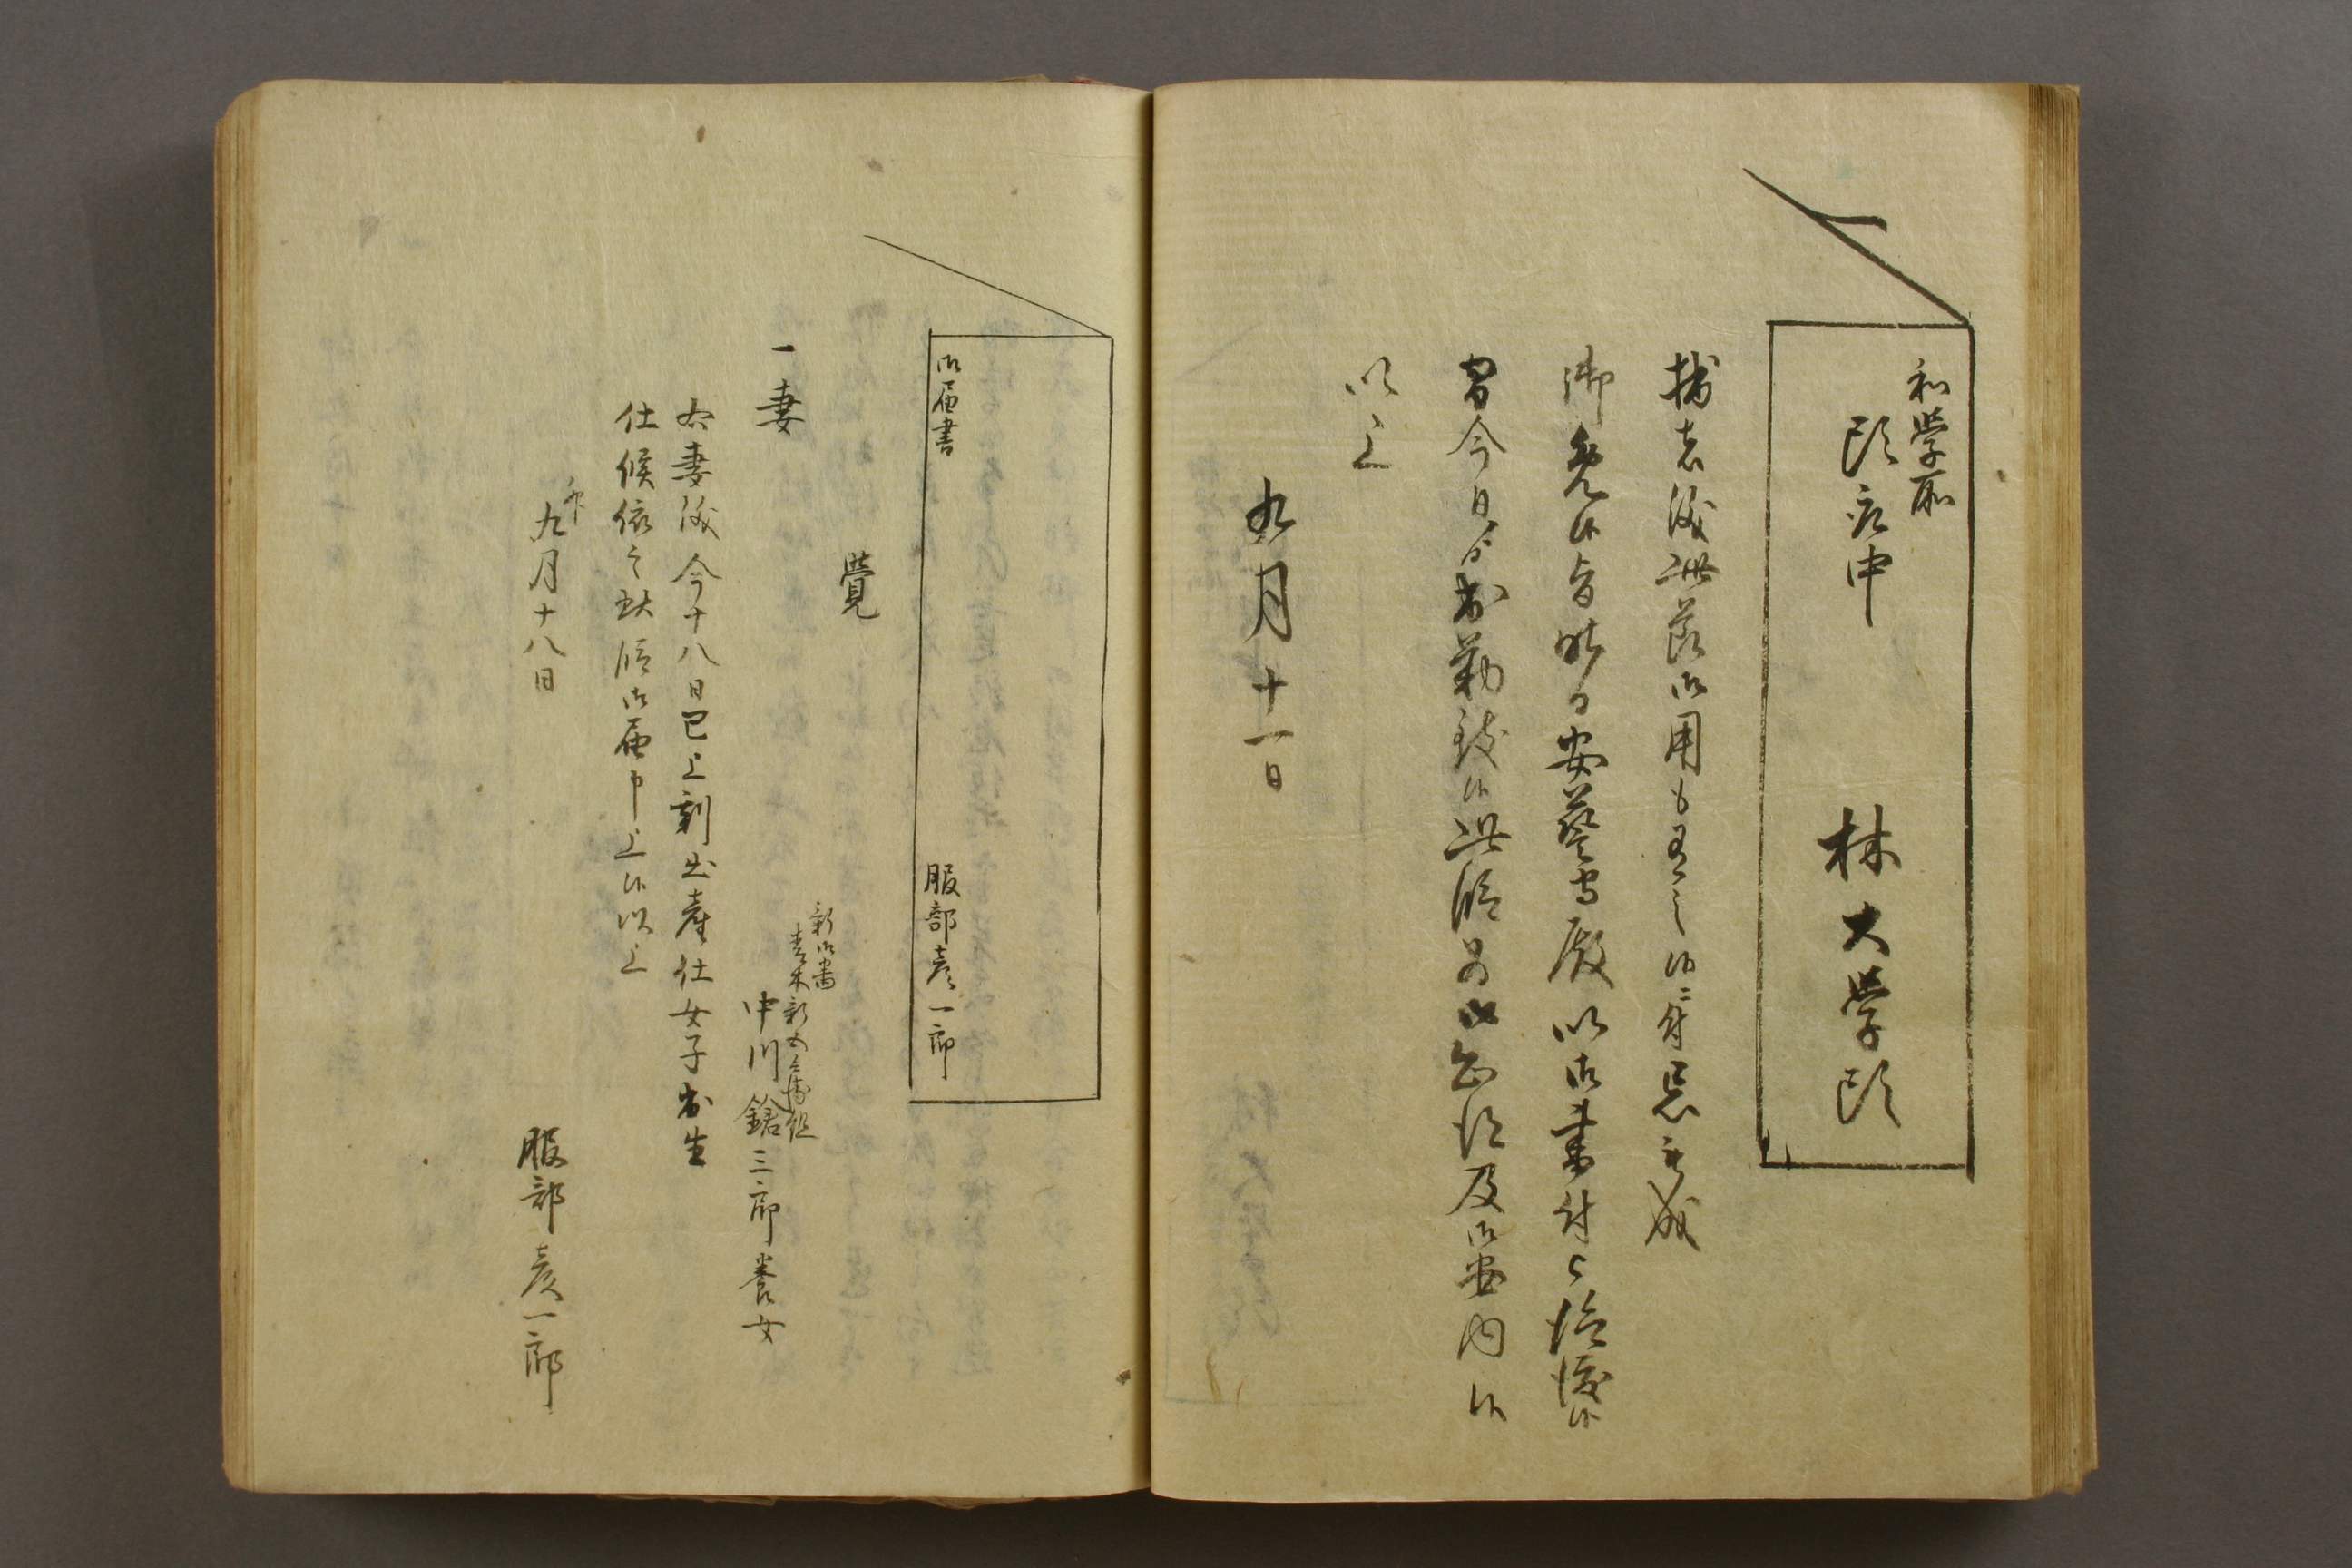 一
和学所
頭衆中
林大学頭
拙者儀此節御用も有之候ニ付忌被成
御免候旨昨日安藝守殿以御書付被仰渡候
間今日ゟ出勤致候此段為御心得及御案内候
以上
九月十一日
御届書
服部彦一郎
覚
新御番
中川鎗三郎養女
一妻
右妻儀今十八日巳上刻出産仕女子出生
仕候依之此段御届申上候以上
九月十八日
服部彦一郎